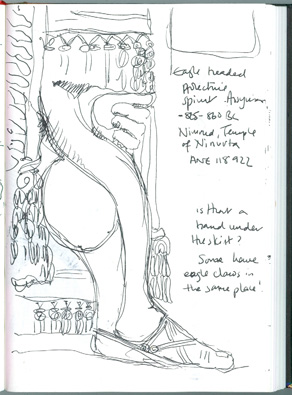 Eagle headed
Protective
spirit Assyrian
-865-860 BC
Nimrud, Temple
of Ninurta
ANE 118922
is that a
hand under
the skirt?
Some have
eagle claws in
the same place!